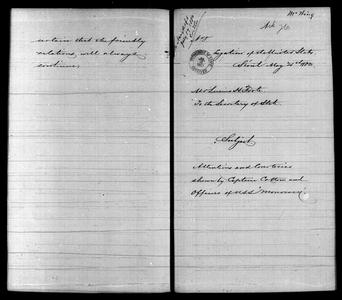 certain that the friendly
relations, will always
continue.
Mr
No 7
Legation of the United States
Seoul May 31st 188
Mr Lucius H Foote
To the Secretary of State
Subject
Attentions and Courtesies
shown by Captain Cotton and
Officers of U.S.S. "Monocacy"